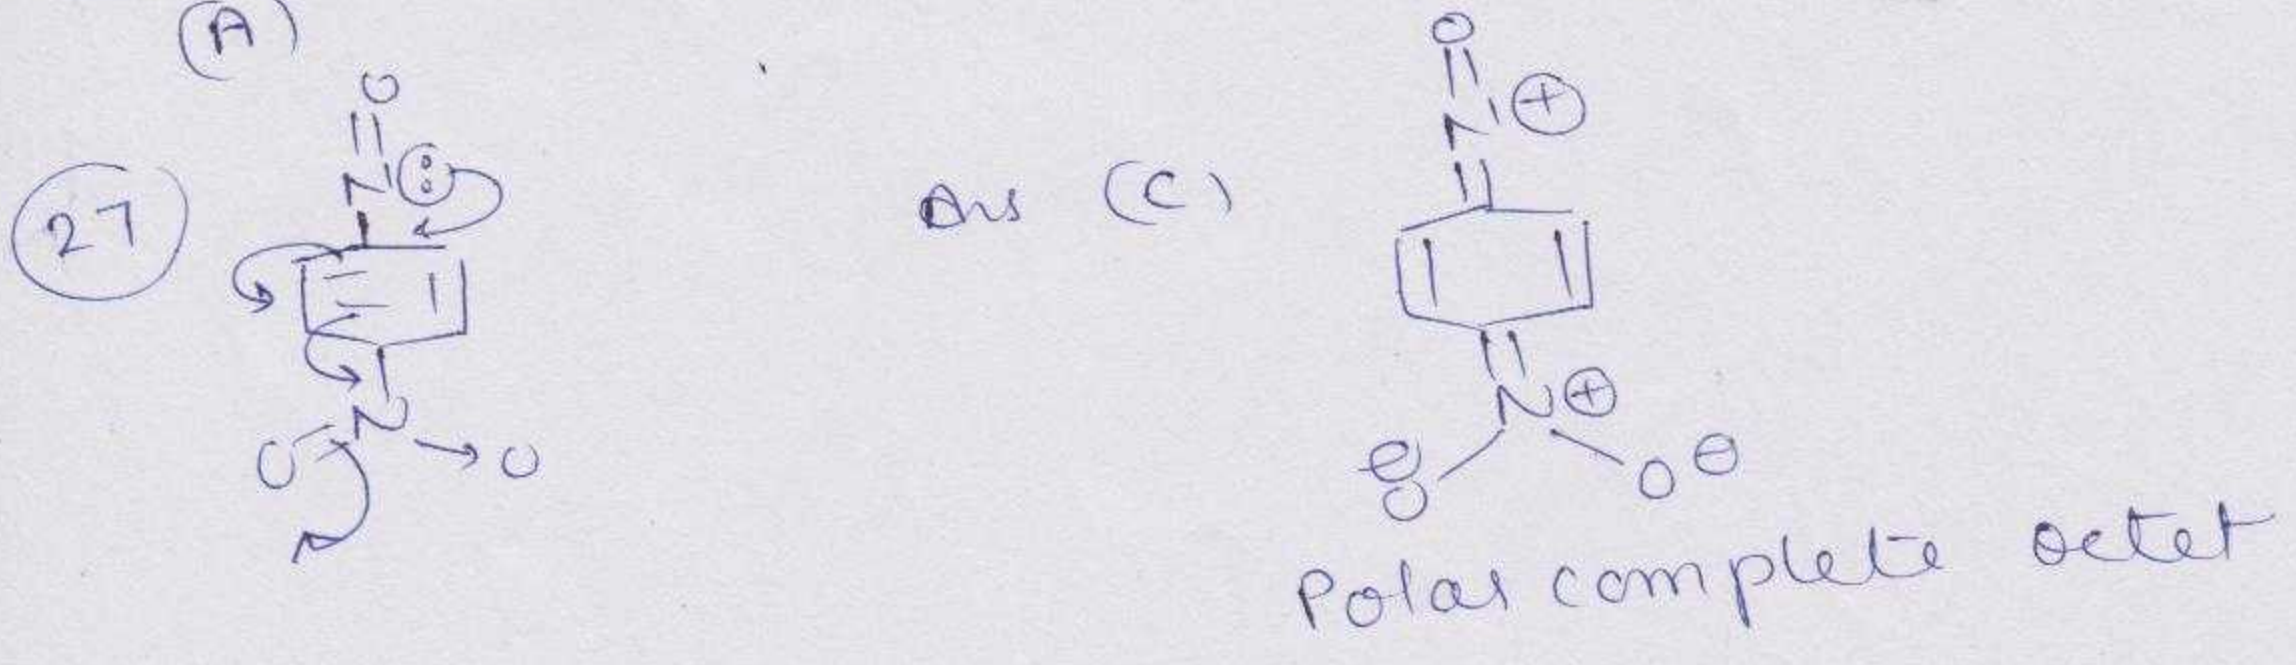 (A)
O
N
27
N
O
O
Ans (C)
O
N ⊕
N ⊕
⊖
O
O ⊖
Polar complete octet